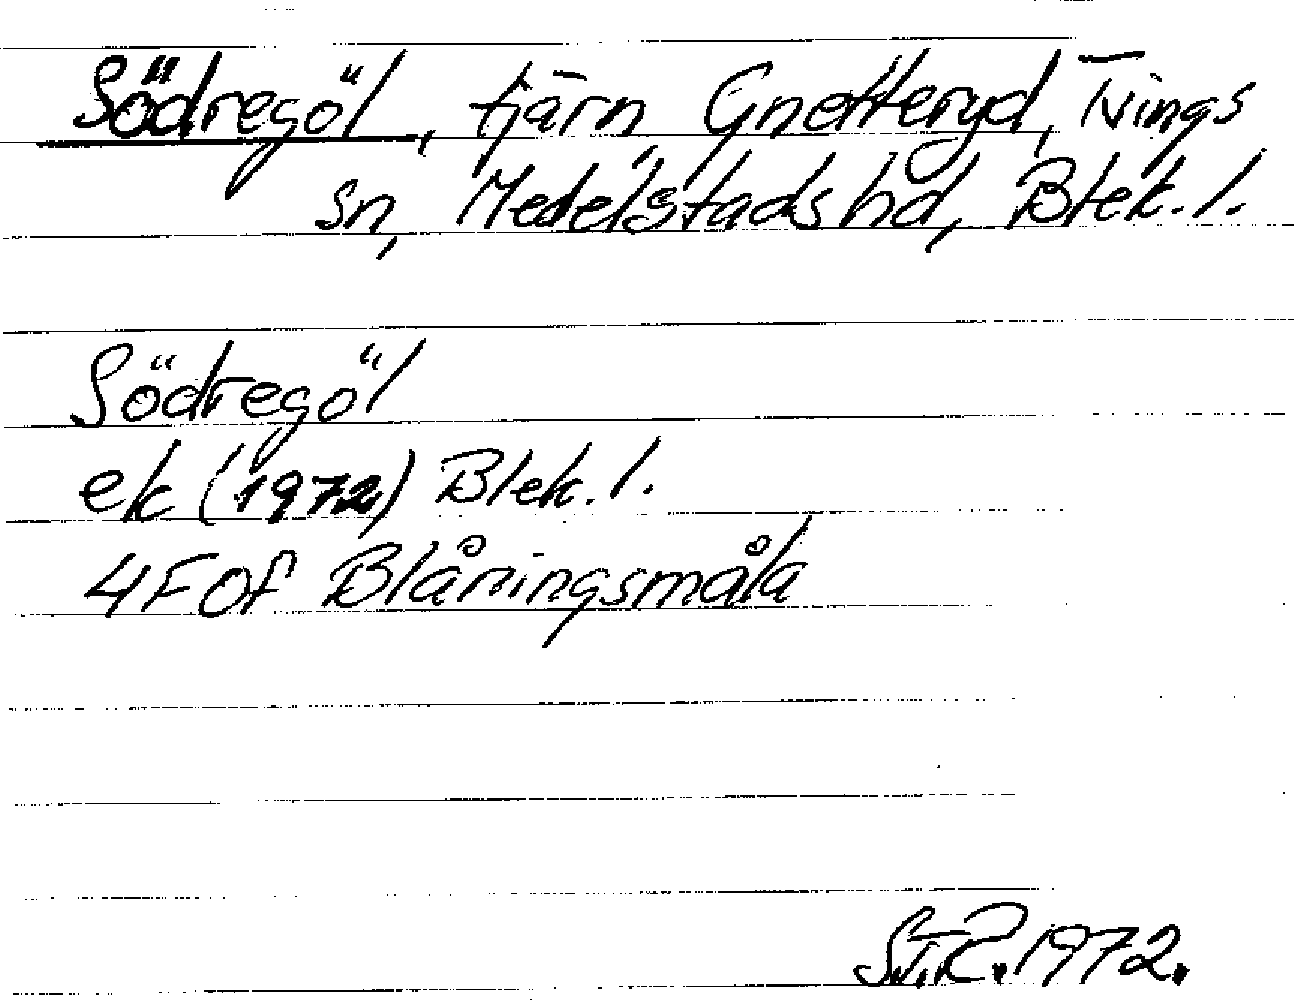 Södregöl, tjärn, Gnetteryd, Tvings
sn, Medelstads hd, Blek. l.
Södregöl
ek (1972) Blek. l.
4F0f Blåningsmåla
1972.